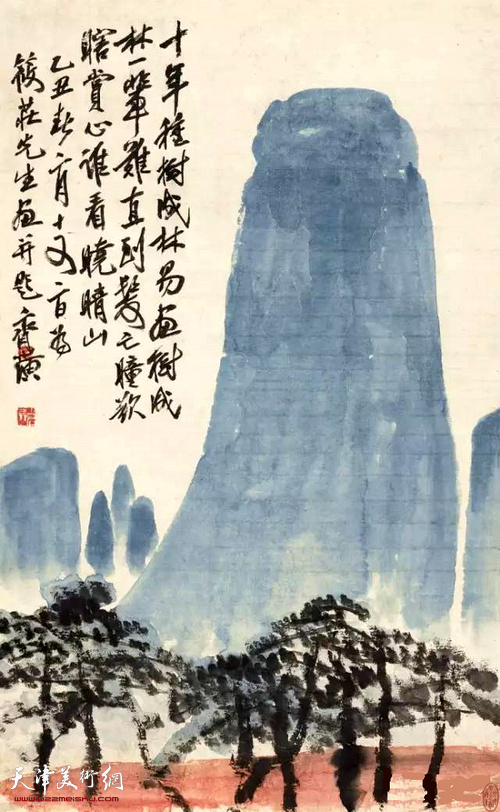 十年種樹成林易画樹成
林一輩難直到髮亡瞳欲
瞎賞心誰看曉晴山
乙丑春二月十又日为
筱莊先生画并題齊璜
天津美術網
www.022meishu.com